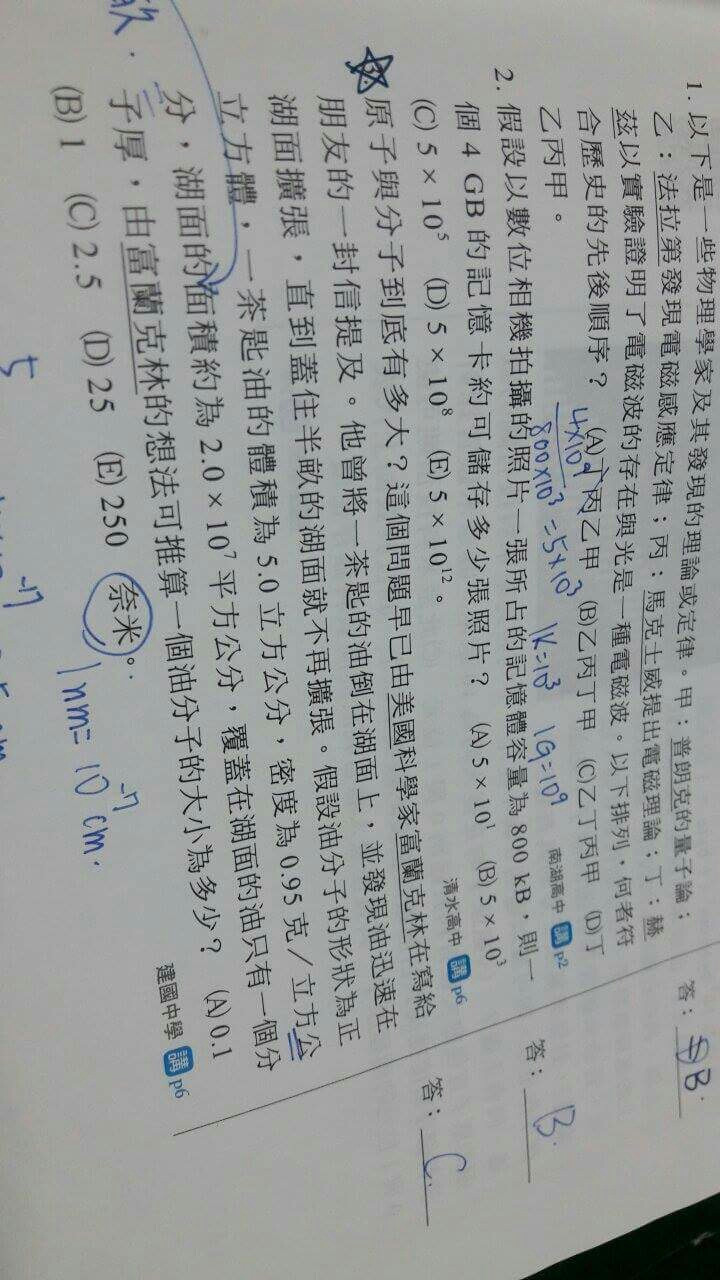 1. 以下是一些物理學家及其發現的理論或定律。甲：普朗克的量子論；
乙：法拉第發現電磁感應定律；丙：馬克士威提出電磁理論；丁：赫
茲以實驗證明了電磁波的存在與光是一種電磁波。以下排列，何者符
合歷史的先後順序？ (A)丁丙乙甲 (B)乙丙丁甲 (C)乙丁丙甲 (D)丁
乙丙甲。
南湖高中 講 p2
答：B.
4×10⁹
800×10³ = 5×10³ 1K=10³ 1G=10⁹
2. 假設以數位相機拍攝的照片一張所占的記憶體容量為 800 kB，則一
個 4 GB 的記憶卡約可儲存多少張照片？ (A) 5 × 10¹ (B) 5 × 10³
(C) 5 × 10⁵ (D) 5 × 10⁸ (E) 5 × 10¹²。
清水高中 講 p6
答：B.
3. 原子與分子到底有多大？這個問題早已由美國科學家富蘭克林在寫給
朋友的一封信提及。他曾將一茶匙的油倒在湖面上，並發現油迅速在
湖面擴張，直到蓋住半畝的湖面就不再擴張。假設油分子的形狀為正
立方體，一茶匙油的體積為 5.0 立方公分，密度為 0.95 克／立方公
分，湖面的面積約為 2.0 × 10⁷ 平方公分，覆蓋在湖面的油只有一個分
子厚，由富蘭克林的想法可推算一個油分子的大小為多少？ (A) 0.1
(B) 1 (C) 2.5 (D) 25 (E) 250 奈米。
建國中學 講 p6
答：C.
1 nm = 10⁻⁷ cm.
5